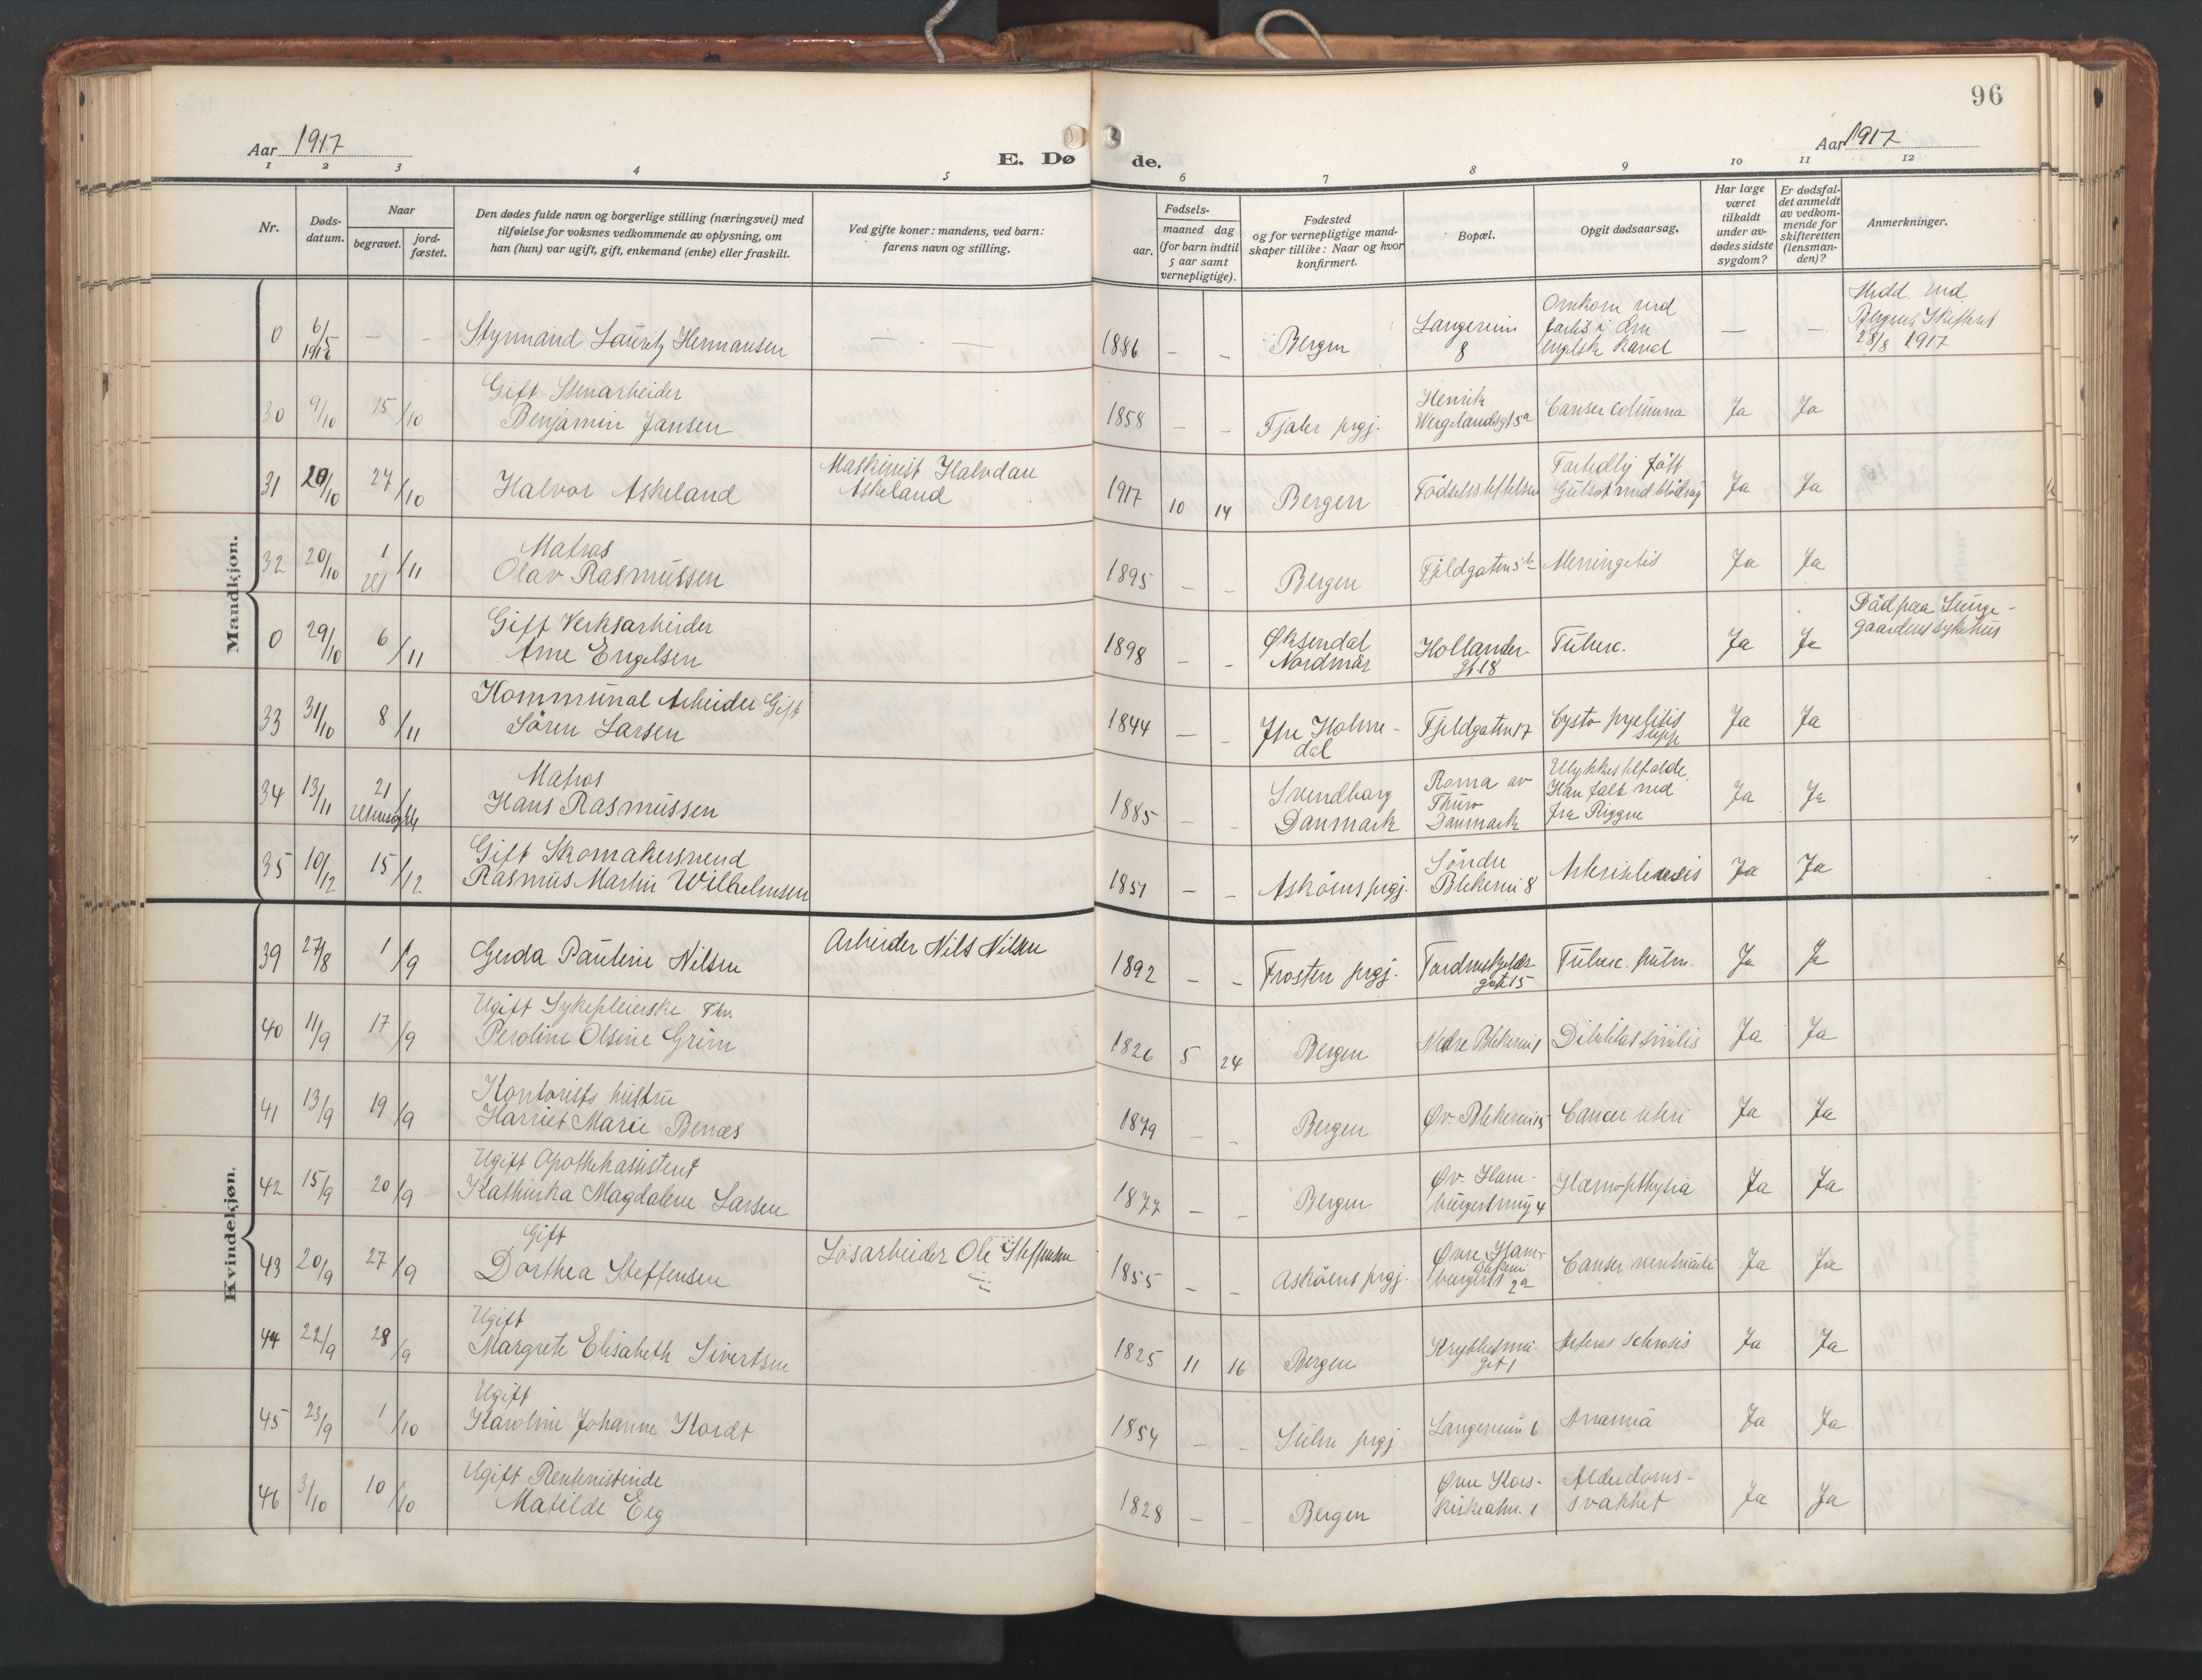 96
Aar 1917
E. Døde.
Aar 1917
1 2 3 4 5 6 7 8 9 10 11 12
Nr.
Døds-
datum.
Naar
begravet.
jord-
fæstet.
Den dødes fulde navn og borgerlige stilling (næringsvei) med
tilføielse for voksnes vedkommende av oplysning, om
han (hun) var ugift, gift, enkemand (enke) eller fraskilt.
Ved gifte koner: mandens, ved barn:
farens navn og stilling.
Fødsels-
aar.
maaned dag
(for barn indtil
5 aar samt
vernepligtige).
Fødested
og for vernepligtige mand-
skaper tillike: Naar og hvor
konfirmert.
Bopæl.
Opgit dødsaarsag.
Har læge
været
tilkaldt
under av-
dødes sidste
sygdom?
Er dødsfal-
det anmeldt
av vedkom-
mende for
skifteretten
(lensman-
den)?
Anmerkninger.
Mandkjøn.
0 6/5 — - Styrmand Lauritz Hermansen — — 1886 — — Bergen Langereim 8 Omkom ved forlis i den engelske Kanal — —
28/8 1917
30 9/10 15/10 Gift Stenarbeider
Benjamin Jansen 1858 — — Fjaler prgj. Henrik
Wergelandsgt 5a Canser columna Ja Ja
31 20/10 27/10 Halvor Askeland Maskinist Halvdan
Askeland 1917 10 14 Bergen Fødselsstiftelsen Ja Ja
32 20/10 1/11 Matros
Olav Rasmussen 1895 — — Bergen Fjeldgaten Meningitis Ja Ja
0 29/10 6/11 Gift Verksarbeider
Arne Engelsen 1898 — — Øksendal
Nordmør Hollender-
gt 18 Tuberc. Ja Ja Død paa Lunge-
gaardens sykehus
33 31/10 8/11 Kommunal Arbeider Gift
Sören Larsen 1844 — — Ytre Holme-
dal Fjeldgaten 17 Cysto pyelitis Ja Ja
34 13/11 21/ Matros
Hans Rasmussen 1885 — — Svendborg
Danmark Roma av
Thurø
Danmark Ulykkestilfælde.
Han falt ned
fra Riggen Ja Ja
35 10/12 15/12 Gift Skomakersvend
Rasmus Martin Wilhelmsen 1851 — — Askøens prgj. Söndre
Blekevei 8 Ja Ja
Kvindekjøn.
39 27/8 1/9 Gerda Pauline Nilsen Arbeider Nils Nilsen 1892 — — Frosten prgj. Tordenskjolds-
gate 15 Tuberc. pulm. Ja Ja
40 11/9 17/9 Ugift Sykepleierske
Peroline Olsine Grim 1826 5 24 Bergen Nedre Blekevei 1 Debilitas senilis Ja Ja
41 13/9 19/9 Kontorists hustru
Harriet Marie Benæs 1879 — — Bergen Øv. Blekevei 15 Cancer uteri Ja Ja
42 15/9 20/9 Ugift Apothekassistent
Kathinka Magdalene Larsen 1877 — — Bergen Øv. Ham-
burgersmug 4 Hæmopthysia Ja Ja
43 20/9 27/9 Gift
Dorthea Steffensen Løsarbeider Ole Steffensen 1855 — — Askøens prgj. Øvre Ham-
burgerst 2a Canser ventriculi Ja Ja
44 22/9 28/9 Ugift
Margrete Elisabeth Sivertsen 1825 11 16 Bergen Ja Ja
45 23/9 1/10 Ugift
Karoline Johanne Kordt 1854 — — prgj Langereim 6 Anæmia Ja Ja
46 3/10 10/10 Ugift Rentenistinde
Matilde Eeg 1828 — — Bergen Øvre Kors-
kirkealm. 1 Alderdoms-
svakhet Ja Ja